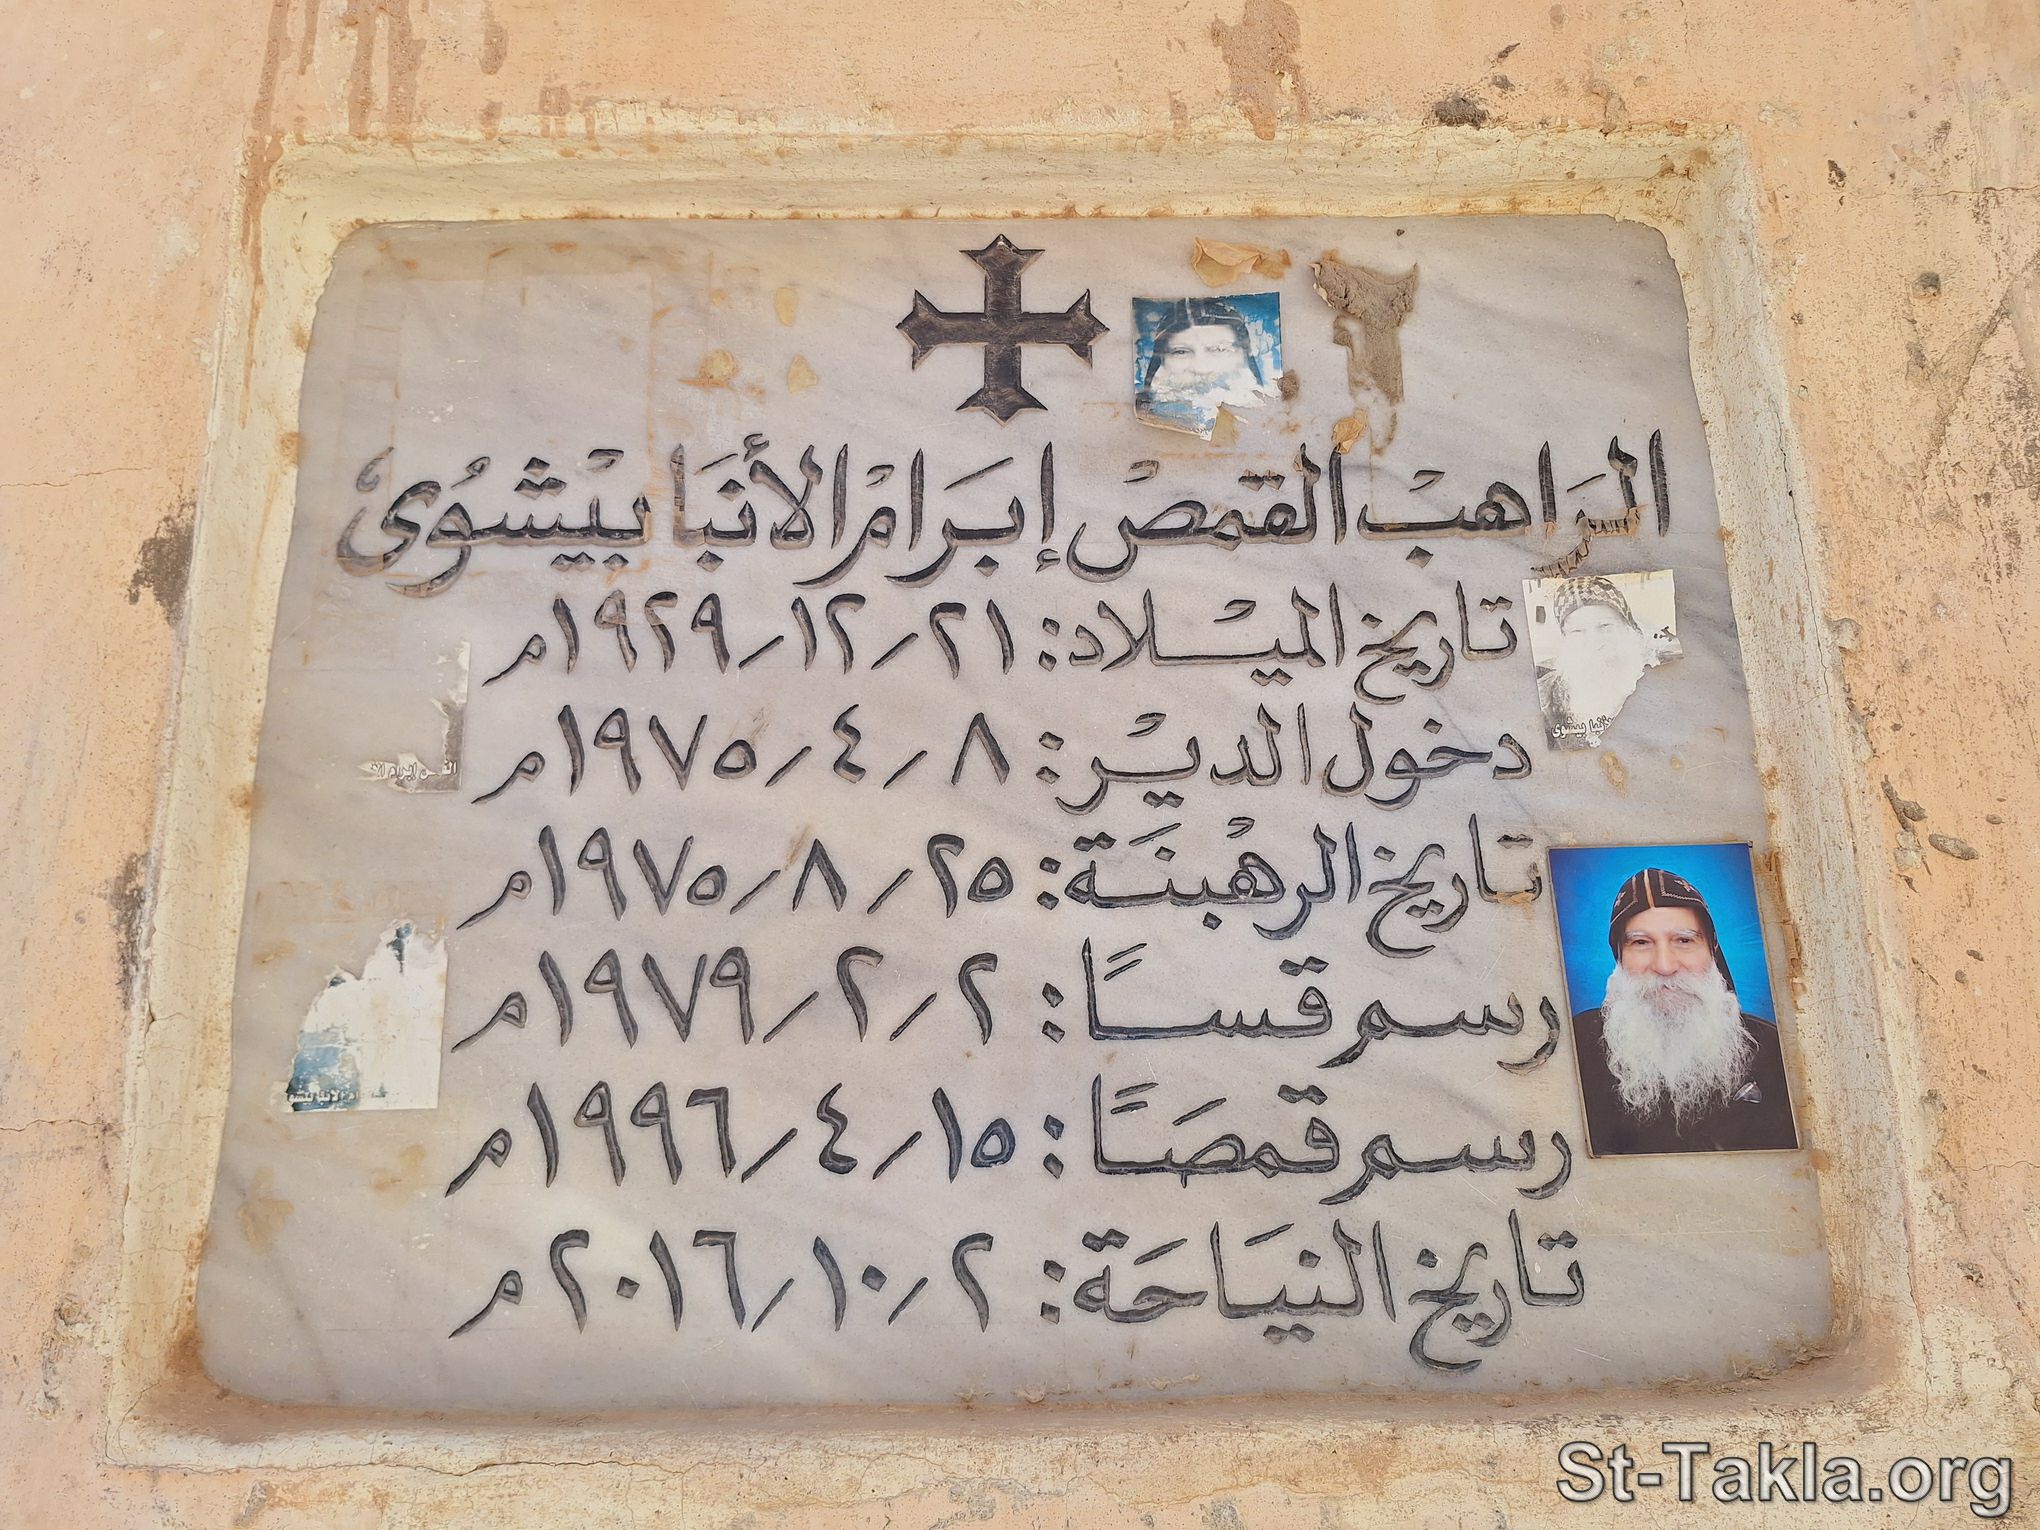 الراهب القمص إبرام الأنبا بيشوي
تاريخ الميلاد: ٢١/١٢/١٩٢٩م
دخول الدير: ٨/٤/١٩٧٥م
تاريخ الرهبنة: ٢٥/٨/١٩٧٥م
رسم قسًا: ٢/٢/١٩٧٩م
رسم قمصًا: ١٥/٤/١٩٩٦م
تاريخ النياحة: ٢/١٠/٢٠١٦م
الأنبا بيشوى
إبرام
St-Takla.org